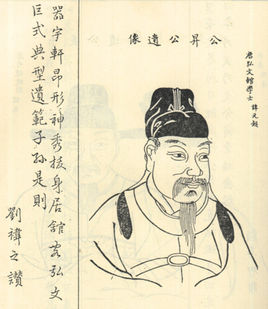 公昇公遺像
唐弘文館學士
諱元超
器宇軒昂形神秀拔身居館客弘文
巨式典型遺範子孫是則
劉禕之讚